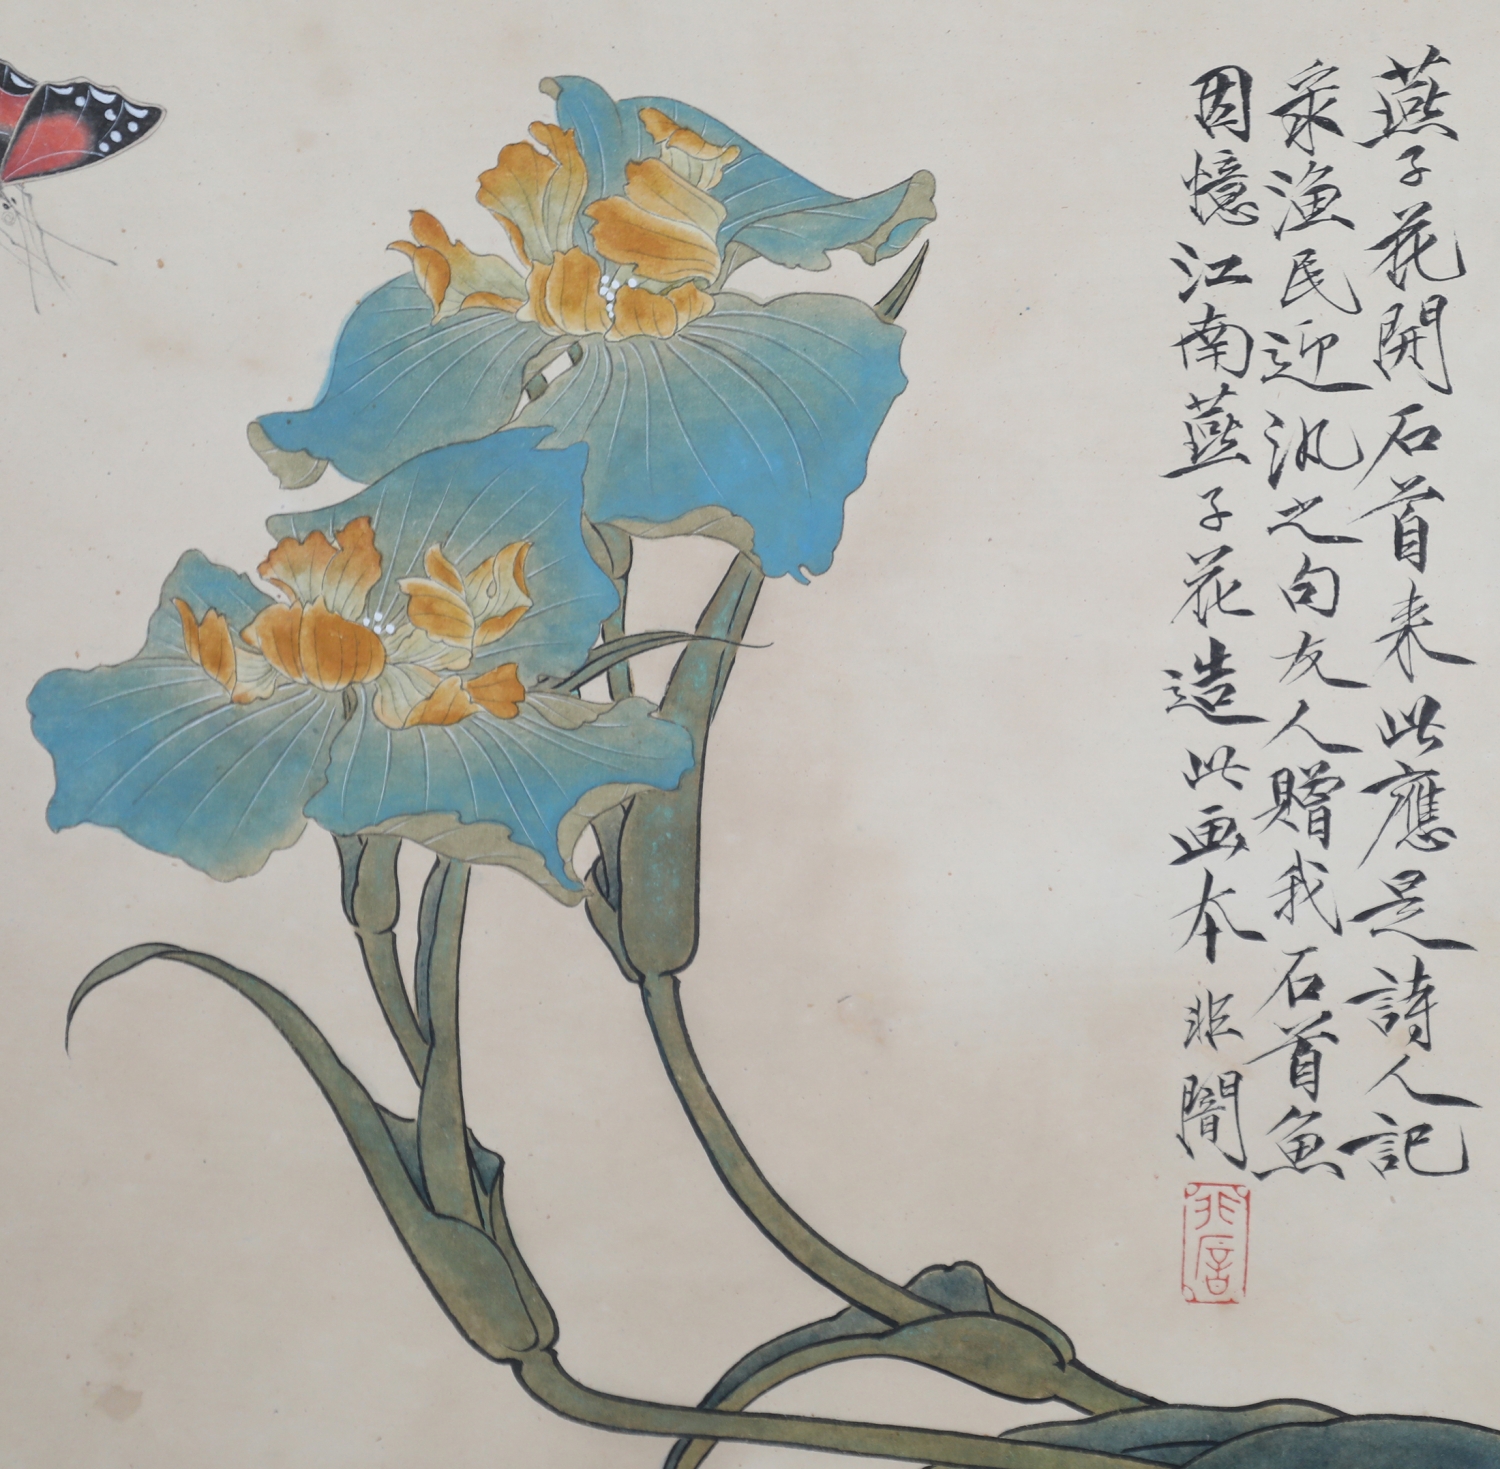 燕子花開石首来此應是詩人記
来漁民迎汛之句友人贈我石首魚
因憶江南燕子花造此画本 非闇
非闇